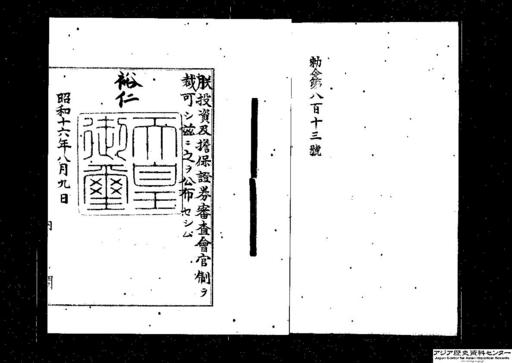 勅令第八百十三號
朕投資及擔保證券審査會官制ヲ
裁可シ茲ニ之ヲ公布セシム
裕仁
天皇御璽
昭和十六年八月九日
内閣
アジア歴史資料センター
Japan Center for Asian Historical Records